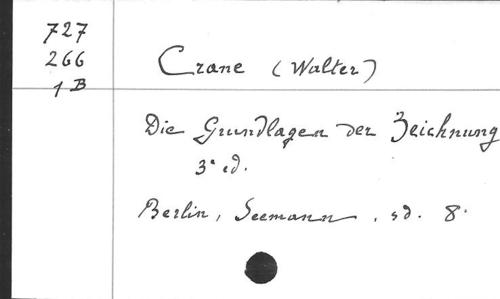 727
266
1 B
Crane (Walter)
Die Grundlagen der Zeichnung
3e ed.
Berlin, Seemann, sd. 8°